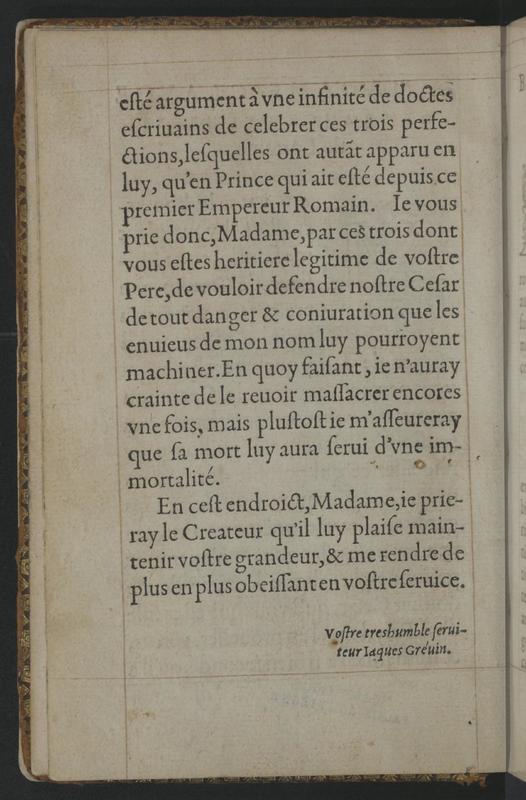 esté argument à vne infinité de doctes
escriuains de celebrer ces trois perfe-
ctions, lesquelles ont autãt apparu en
luy, qu'en Prince qui ait esté depuis ce
premier Empereur Romain. Ie vous
prie donc, Madame, par ces trois dont
vous estes heritiere legitime de vostre
Pere, de vouloir defendre nostre Cesar
de tout danger & coniuration que les
enuieus de mon nom luy pourroyent
machiner. En quoy faisant, ie n'auray
crainte de le reuoir massacrer encores
vne fois, mais plustost ie m'asseureray
que sa mort luy aura serui d'vne im-
mortalité.
En cest endroict, Madame, ie prie-
ray le Createur qu'il luy plaise main-
tenir vostre grandeur, & me rendre de
plus en plus obeissant en vostre seruice.
Vostre treshumble serui-
teur Iaques Greuin.